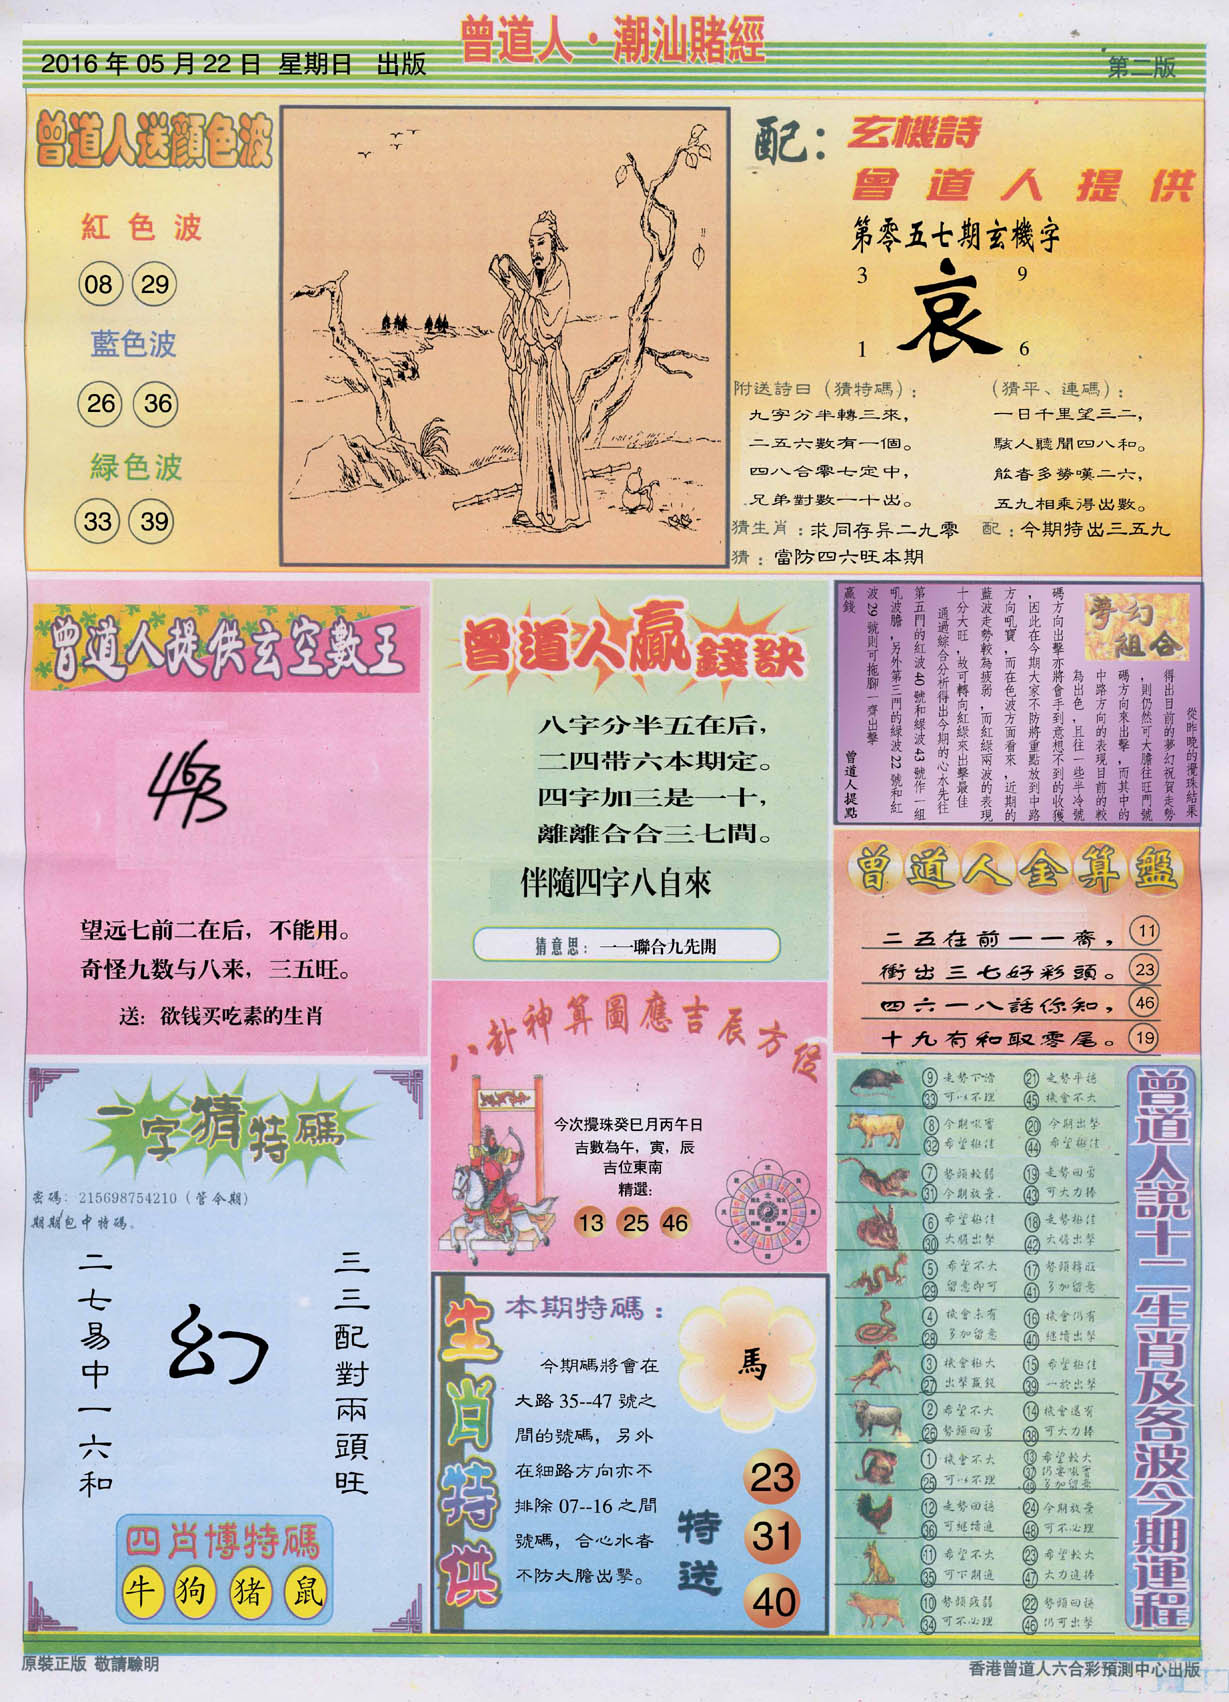 曾道人·潮汕賭經
2016 年 05 月 22 日 星期日 出版
第二版
曾道人送顏色波
紅色波
08 29
藍色波
26 36
緑色波
33 39
配:
玄機詩
曾道人提供
第零五七期玄機字
3 9
哀
1 6
附送詩曰（猜特碼）:
九字分半轉三來，
二五六數有一個。
四八合零七定中，
兄弟對數一十出。
（猜平、連碼）:
一日千里望三二，
駭人聽聞四八和。
能者多勞嘆二六，
五九相乘得出數。
猜生肖:求同存异二九零
配:今期特出三五九
猜:當防四六旺本期
曾道人提供玄空數王
望远七前二在后，不能用。
奇怪九数与八来，三五旺。
送：欲钱买吃素的生肖
曾道人贏錢訣
八字分半五在后，
二四带六本期定。
四字加三是一十，
離離合合三七間。
伴隨四字八自來
猜意思：一一聯合九先開
夢幻組合
從昨晚的攪珠結果
得出目前的夢幻祝賀走勢
，則仍然可大膽往旺門號
碼方向來出擊，而其中的
中路方向的表現目前的較
為出色，且往一些半冷號
碼方向出擊亦將會手到意想不到的收獲
，因此在今期大家不防將重點放到中路
方向吼寶，而在色波方面看來，近期的
藍波走勢較為疲弱，而紅綠兩波的表現
十分大旺，故可轉向紅綠來出擊最佳
通過綜合分析得出今期的心水先往
第五門的紅波 40 號和綠波 43 號作一組
吼波膽，另外第三門的綠波 22 號和紅
波 29 號則可拖腳一齊出擊
贏錢
曾道人提點
曾道人金算盤
二五在前一一齊， 11
衝出三七好彩頭。 23
四六一八話你知， 46
十九有和取零尾。 19
八卦神算圖應吉辰方位
今次攪珠癸巳月丙午日
吉數為午，寅，辰
吉位東南
精選:
13 25 46
一字猜特碼
密碼: 215698754210 (管令期)
期期包中特碼。
三三配對兩頭旺
幻
二七易中一六和
四肖博特碼
牛 狗 猪 鼠
生肖特供
本期特碼：
馬
今期碼將會在
大路 35--47 號之
間的號碼，另外
在細路方向亦不
排除 07--16 之間
號碼，合心水者
不防大膽出擊。
特送
23
31
40
曾道人説十二生肖及各波今期運程
9 走勢下滑 21 走勢平穩
33 可以不理 45 機會不大
8 今期吼實 20 今期出擊
32 希望極佳 44 希望極佳
7 勢頭較弱 19 走勢回勇
31 今期放棄 43 可大力捧
6 希望極佳 18 走勢極佳
30 大膽出擊 42 大膽出擊
5 希望不大 17 勢頭轉旺
29 留意即可 41 多加留意
4 機會未有 16 機會仍有
28 多加留意 40 繼續出擊
3 機會極大 15 希望極佳
27 出擊贏錢 39 一於出擊
2 希望不大 14 機會還有
26 勢頭回勇 38 可大力捧
1 機會不大 13 希望較大
25 可以不理 37 仍要吼實
49 多加留意
12 走勢回穩 24 今期放棄
36 可繼續追 48 可不必理
11 希望不大 23 希望較大
35 可下期追 47 大力追捧
10 勢頭疲弱 22 勢頭回穩
34 可不必理 46 仍可出擊
原裝正版 敬請驗明
香港曾道人六合彩預測中心出版